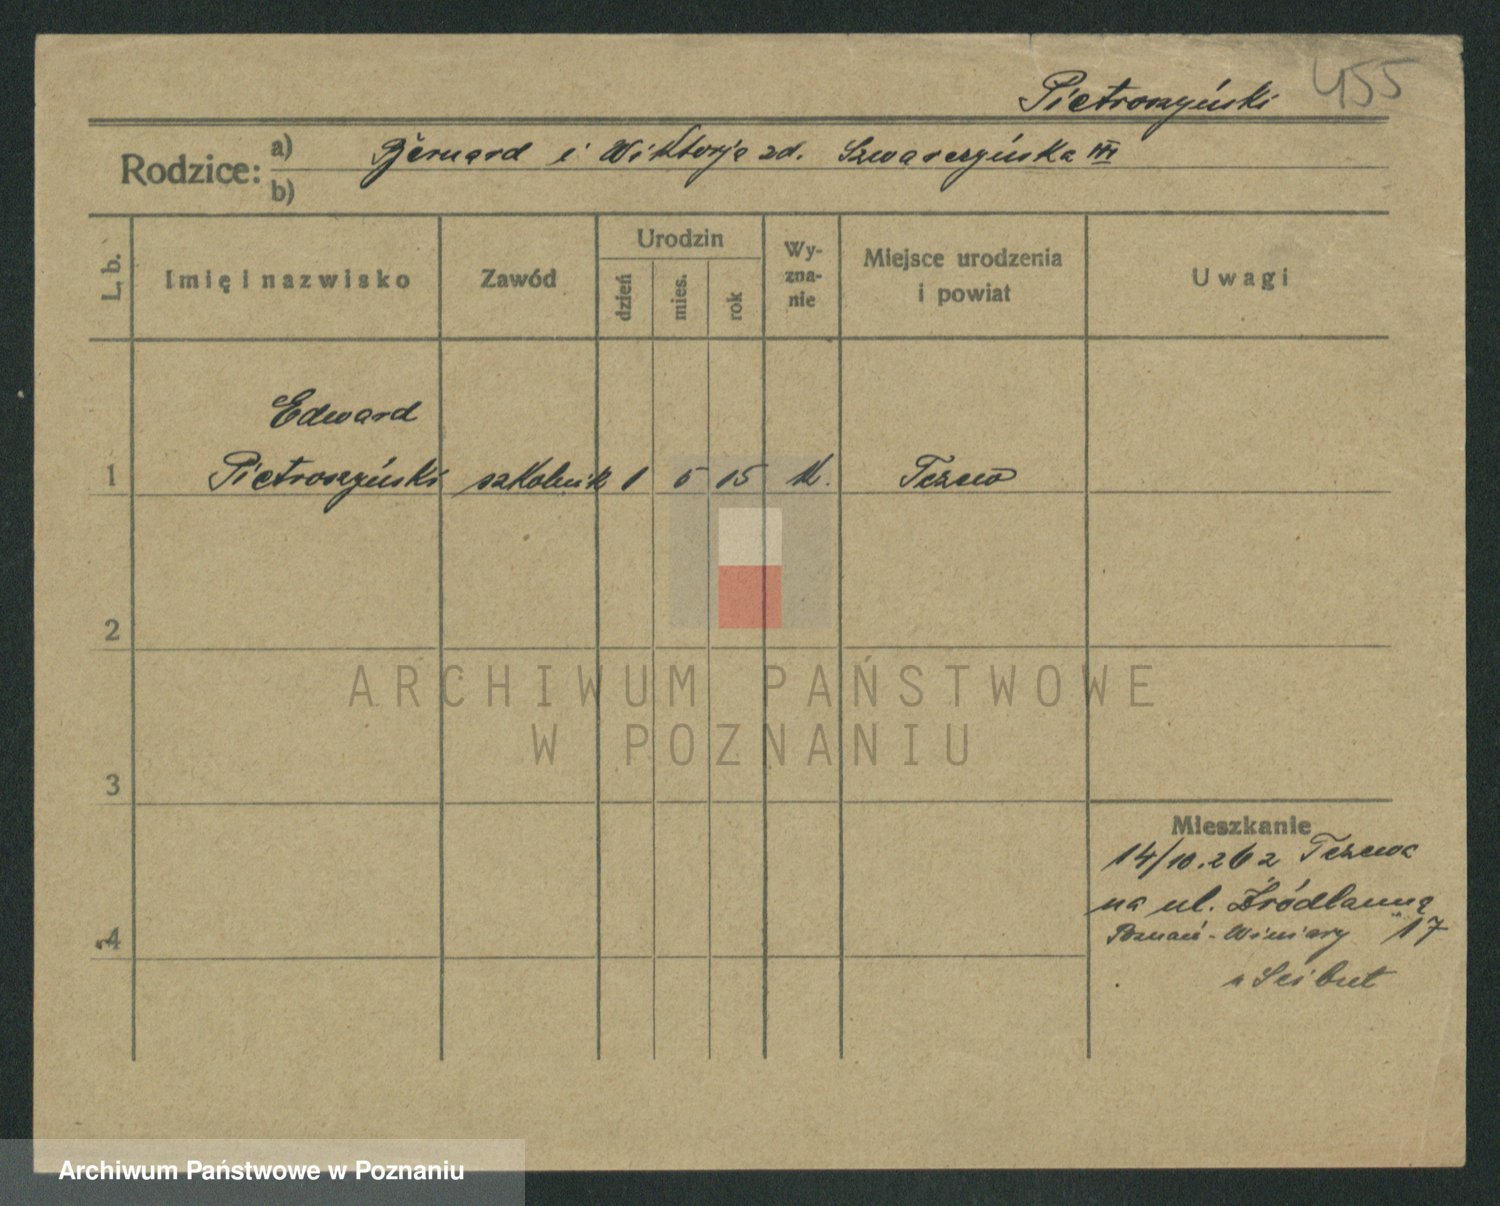 Pietroszyński 455
Rodzice: a) Bernard i Wiktorja zd. Szwarczyńska
b)
L. b. Imię i nazwisko Zawód Urodzin dzień mies. rok Wyznanie Miejsce urodzenia i powiat Uwagi
Edward
1 Pietroszyński szkolnik 1 5 15 k. Tczew
2
3
4
Mieszkanie
14/10.26 z Tczewa
na ul. Źródlanną
Poznań - Winiary 17
ARCHIWUM PAŃSTWOWE
W POZNANIU
Archiwum Państwowe w Poznaniu